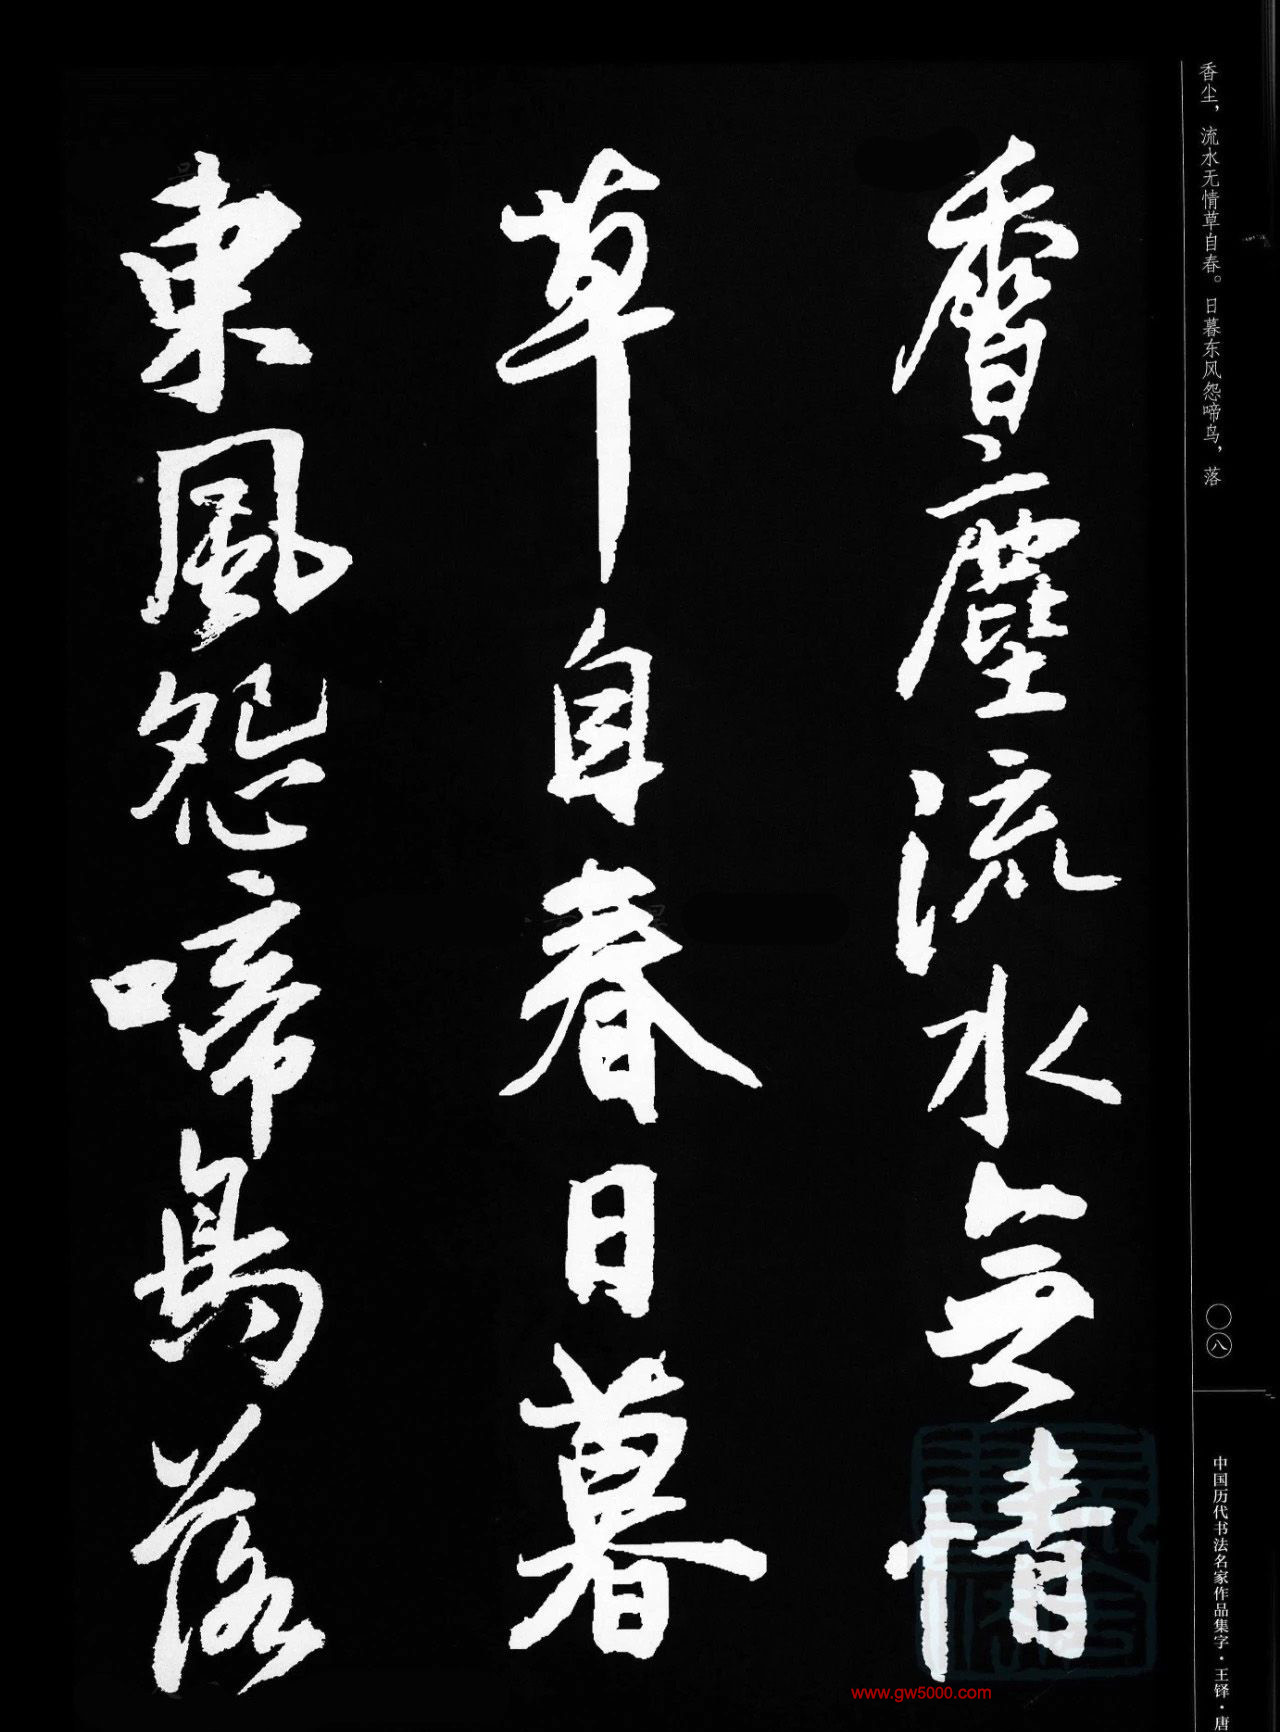 香尘，流水无情草自春。日暮东风怨啼鸟，落
香塵流水無情
草自春日暮
東風怨啼鳥落
〇八
中国历代书法名家作品集字·王铎·唐
www.gw5000.com